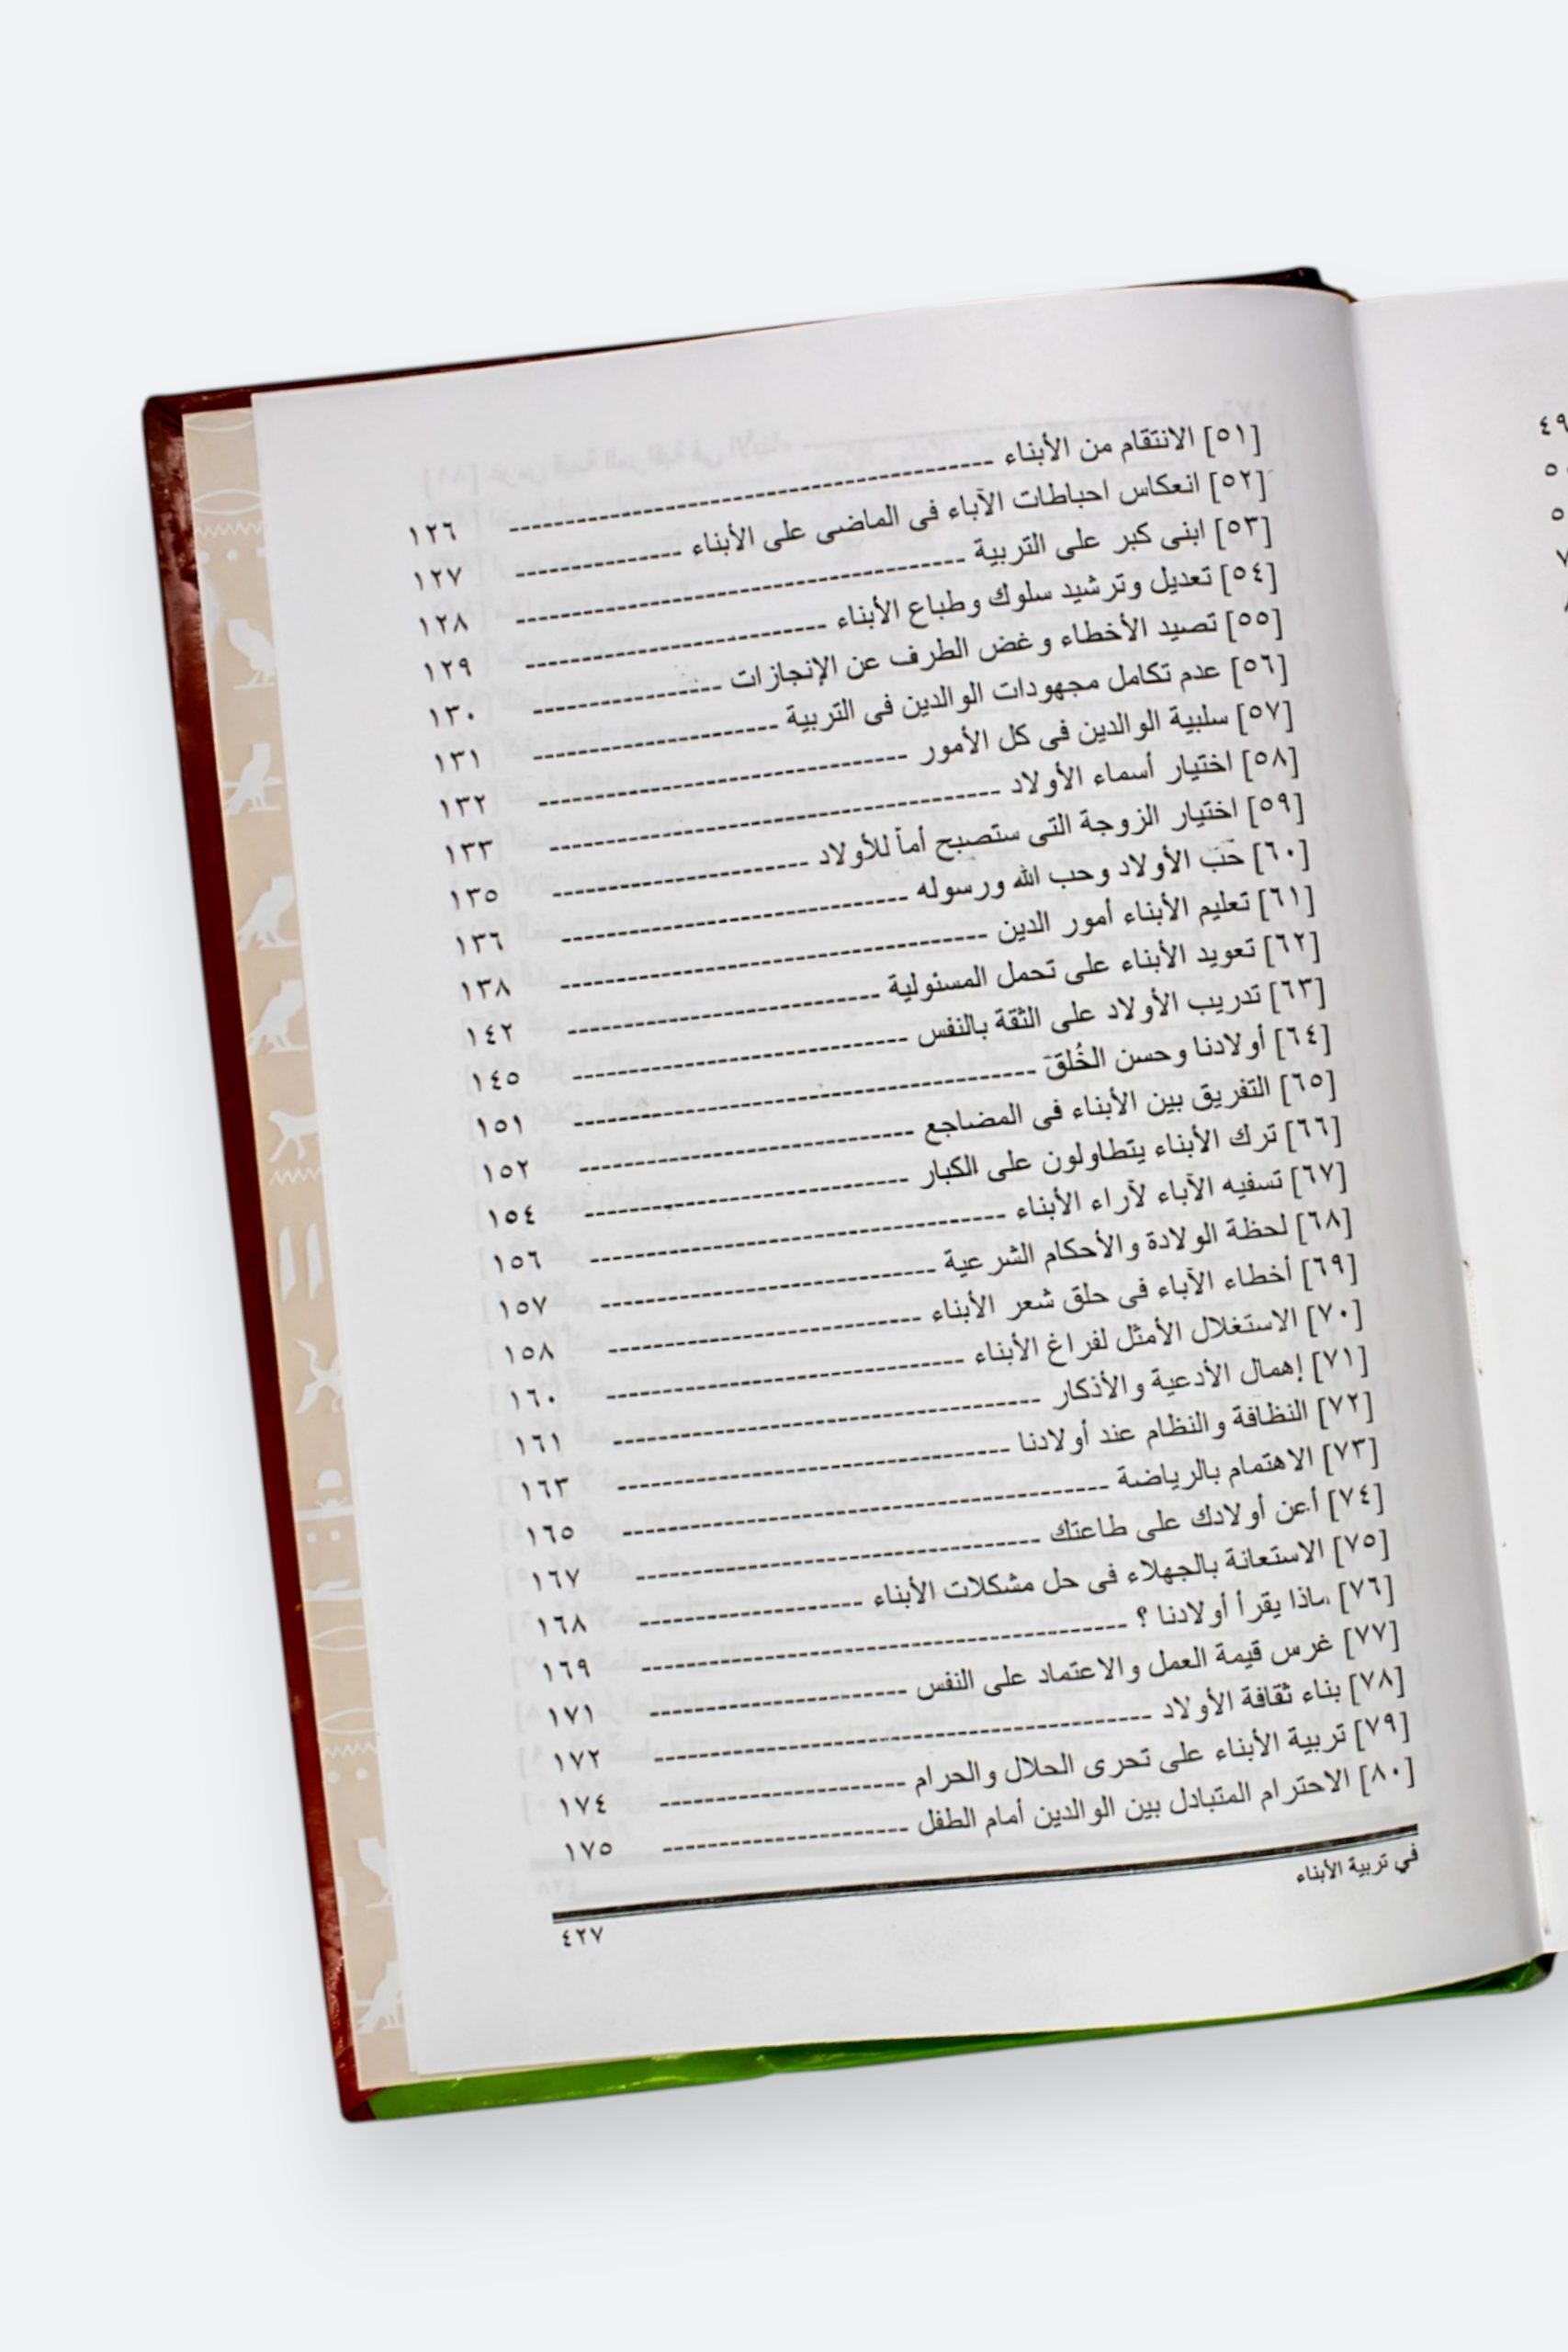 [٥١] الانتقام من الأبناء ---------- ١٢٦
[٥٢] انعكاس احباطات الآباء فى الماضى على الأبناء ---------- ١٢٧
[٥٣] ابنى كبر على التربية ---------- ١٢٨
[٥٤] تعديل وترشيد سلوك وطباع الأبناء ---------- ١٢٩
[٥٥] تصيد الأخطاء وغض الطرف عن الإنجازات ---------- ١٣٠
[٥٦] عدم تكامل مجهودات الوالدين فى التربية ---------- ١٣١
[٥٧] سلبية الوالدين فى كل الأمور ---------- ١٣٢
[٥٨] اختيار أسماء الأولاد ---------- ١٣٣
[٥٩] اختيار الزوجة التى ستصبح أماً للأولاد ---------- ١٣٥
[٦٠] حب الأولاد وحب الله ورسوله ---------- ١٣٦
[٦١] تعليم الأبناء أمور الدين ---------- ١٣٨
[٦٢] تعويد الأبناء على تحمل المسئولية ---------- ١٤٢
[٦٣] تدريب الأولاد على الثقة بالنفس ---------- ١٤٥
[٦٤] أولادنا وحسن الخُلق ---------- ١٥١
[٦٥] التفريق بين الأبناء فى المضاجع ---------- ١٥٢
[٦٦] ترك الأبناء يتطاولون على الكبار ---------- ١٥٤
[٦٧] تسفيه الآباء لآراء الأبناء ---------- ١٥٦
[٦٨] لحظة الولادة والأحكام الشرعية ---------- ١٥٧
[٦٩] أخطاء الآباء فى حلق شعر الأبناء ---------- ١٥٨
[٧٠] الاستغلال الأمثل لفراغ الأبناء ---------- ١٦٠
[٧١] إهمال الأدعية والأذكار ---------- ١٦١
[٧٢] النظافة والنظام عند أولادنا ---------- ١٦٣
[٧٣] الاهتمام بالرياضة ---------- ١٦٥
[٧٤] أعن أولادك على طاعتك ---------- ١٦٧
[٧٥] الاستعانة بالجهلاء فى حل مشكلات الأبناء ---------- ١٦٨
[٧٦] ماذا يقرأ أولادنا ؟ ---------- ١٦٩
[٧٧] غرس قيمة العمل والاعتماد على النفس ---------- ١٧١
[٧٨] بناء ثقافة الأولاد ---------- ١٧٢
[٧٩] تربية الأبناء على تحرى الحلال والحرام ---------- ١٧٤
[٨٠] الاحترام المتبادل بين الوالدين أمام الطفل ---------- ١٧٥
في تربية الأبناء
٤٢٧